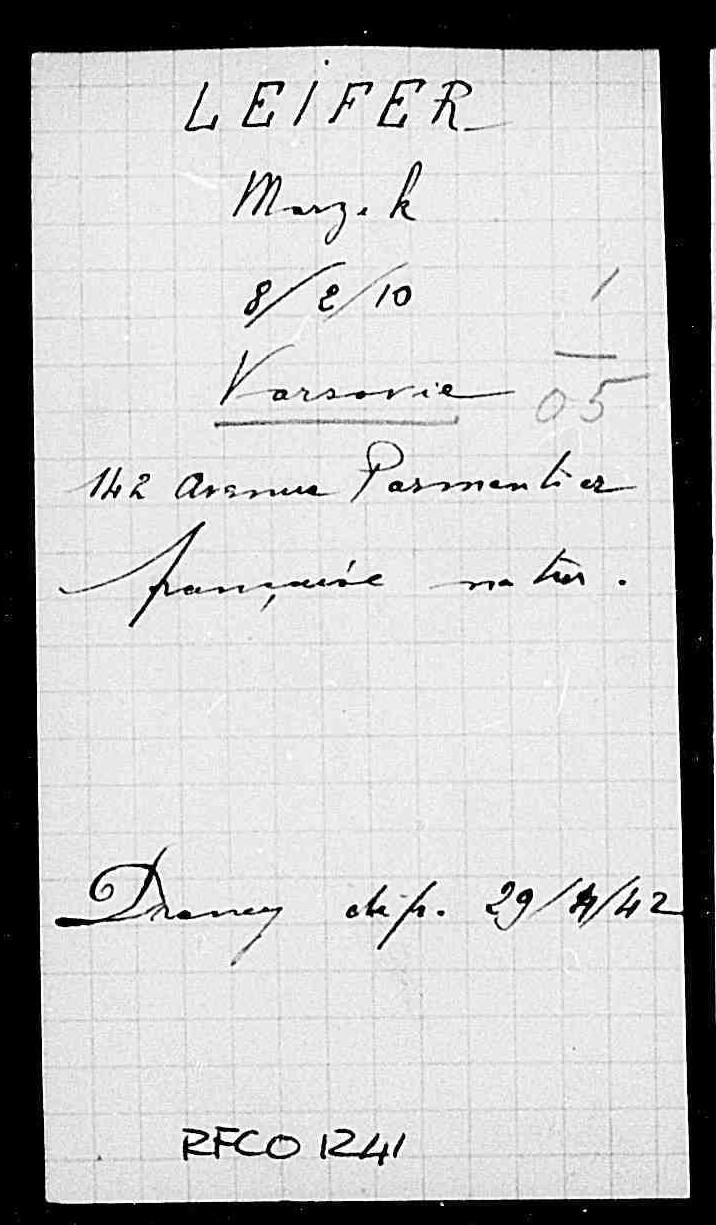 LEIFER
Marzek
8/2/10
1
Varsovie 05
142 Avenue Parmentier
française natur.
Drancy dép. 29/4/42
RFCO 1241